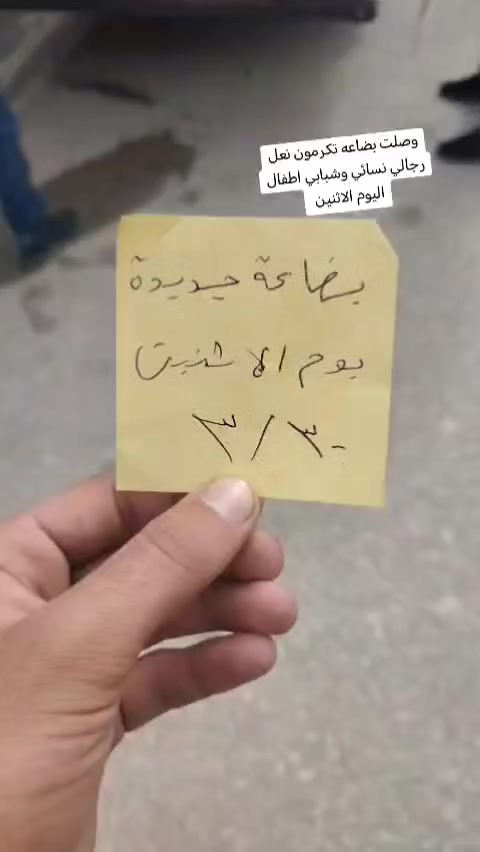 وصلت بضاعه تكرمون نعل
رجالي نسائي وشبابي اطفال
اليوم الاثنين
بضاعة جديدة
يوم الاثنين
٣٠/٣